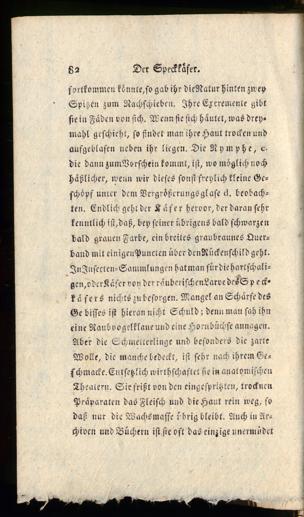 82 Der Speckkäfer.
fortkommen könnte, so gab ihr die Natur hinten zwey
Spizen zum Nachschieben. Ihre Extremente gibt
sie in Fäden von sich. Wenn sie sich häutet, was drey-
mahl geschieht, so findet man ihre Haut trocken und
aufgeblasen neben ihr liegen. Die Nymphe, c.
die dann zum Vorschein kommt, ist, wo möglich noch
häßlicher, wenn wir dieses sonst freylich kleine Ge-
schöpf unter dem Vergrößerungsglase d. beobach-
ten. Endlich geht der Käfer hervor, der daran sehr
kenntlich ist, daß, bey seiner übrigens bald schwarzen
bald grauen Farbe, ein breites graubraunes Quer-
band mit einigen Puncten über den Rückenschild geht.
In Insecten-Sammlungen hat man für die hartschali-
gen, oder Käfer von der räuberischen Larve des Speck-
käfers nichts zu besorgen. Mangel an Schärfe des
Gebisses ist hieran nicht Schuld; denn man sah ihn
eine Raubvogelklaue und eine Hornbüchse annagen.
Aber die Schmetterlinge und besonders die zarte
Wolle, die manche bedeckt, ist sehr nach ihrem Ge-
schmacke. Entsetzlich wirthschaftet sie in anatomischen
Theatern. Sie frißt von den eingespritzten, trocknen
Präparaten das Fleisch und die Haut rein weg, so
daß nur die Wachsmasse übrig bleibt. Auch in Ar-
chiven und Büchern ist sie oft das einzige unermüdet